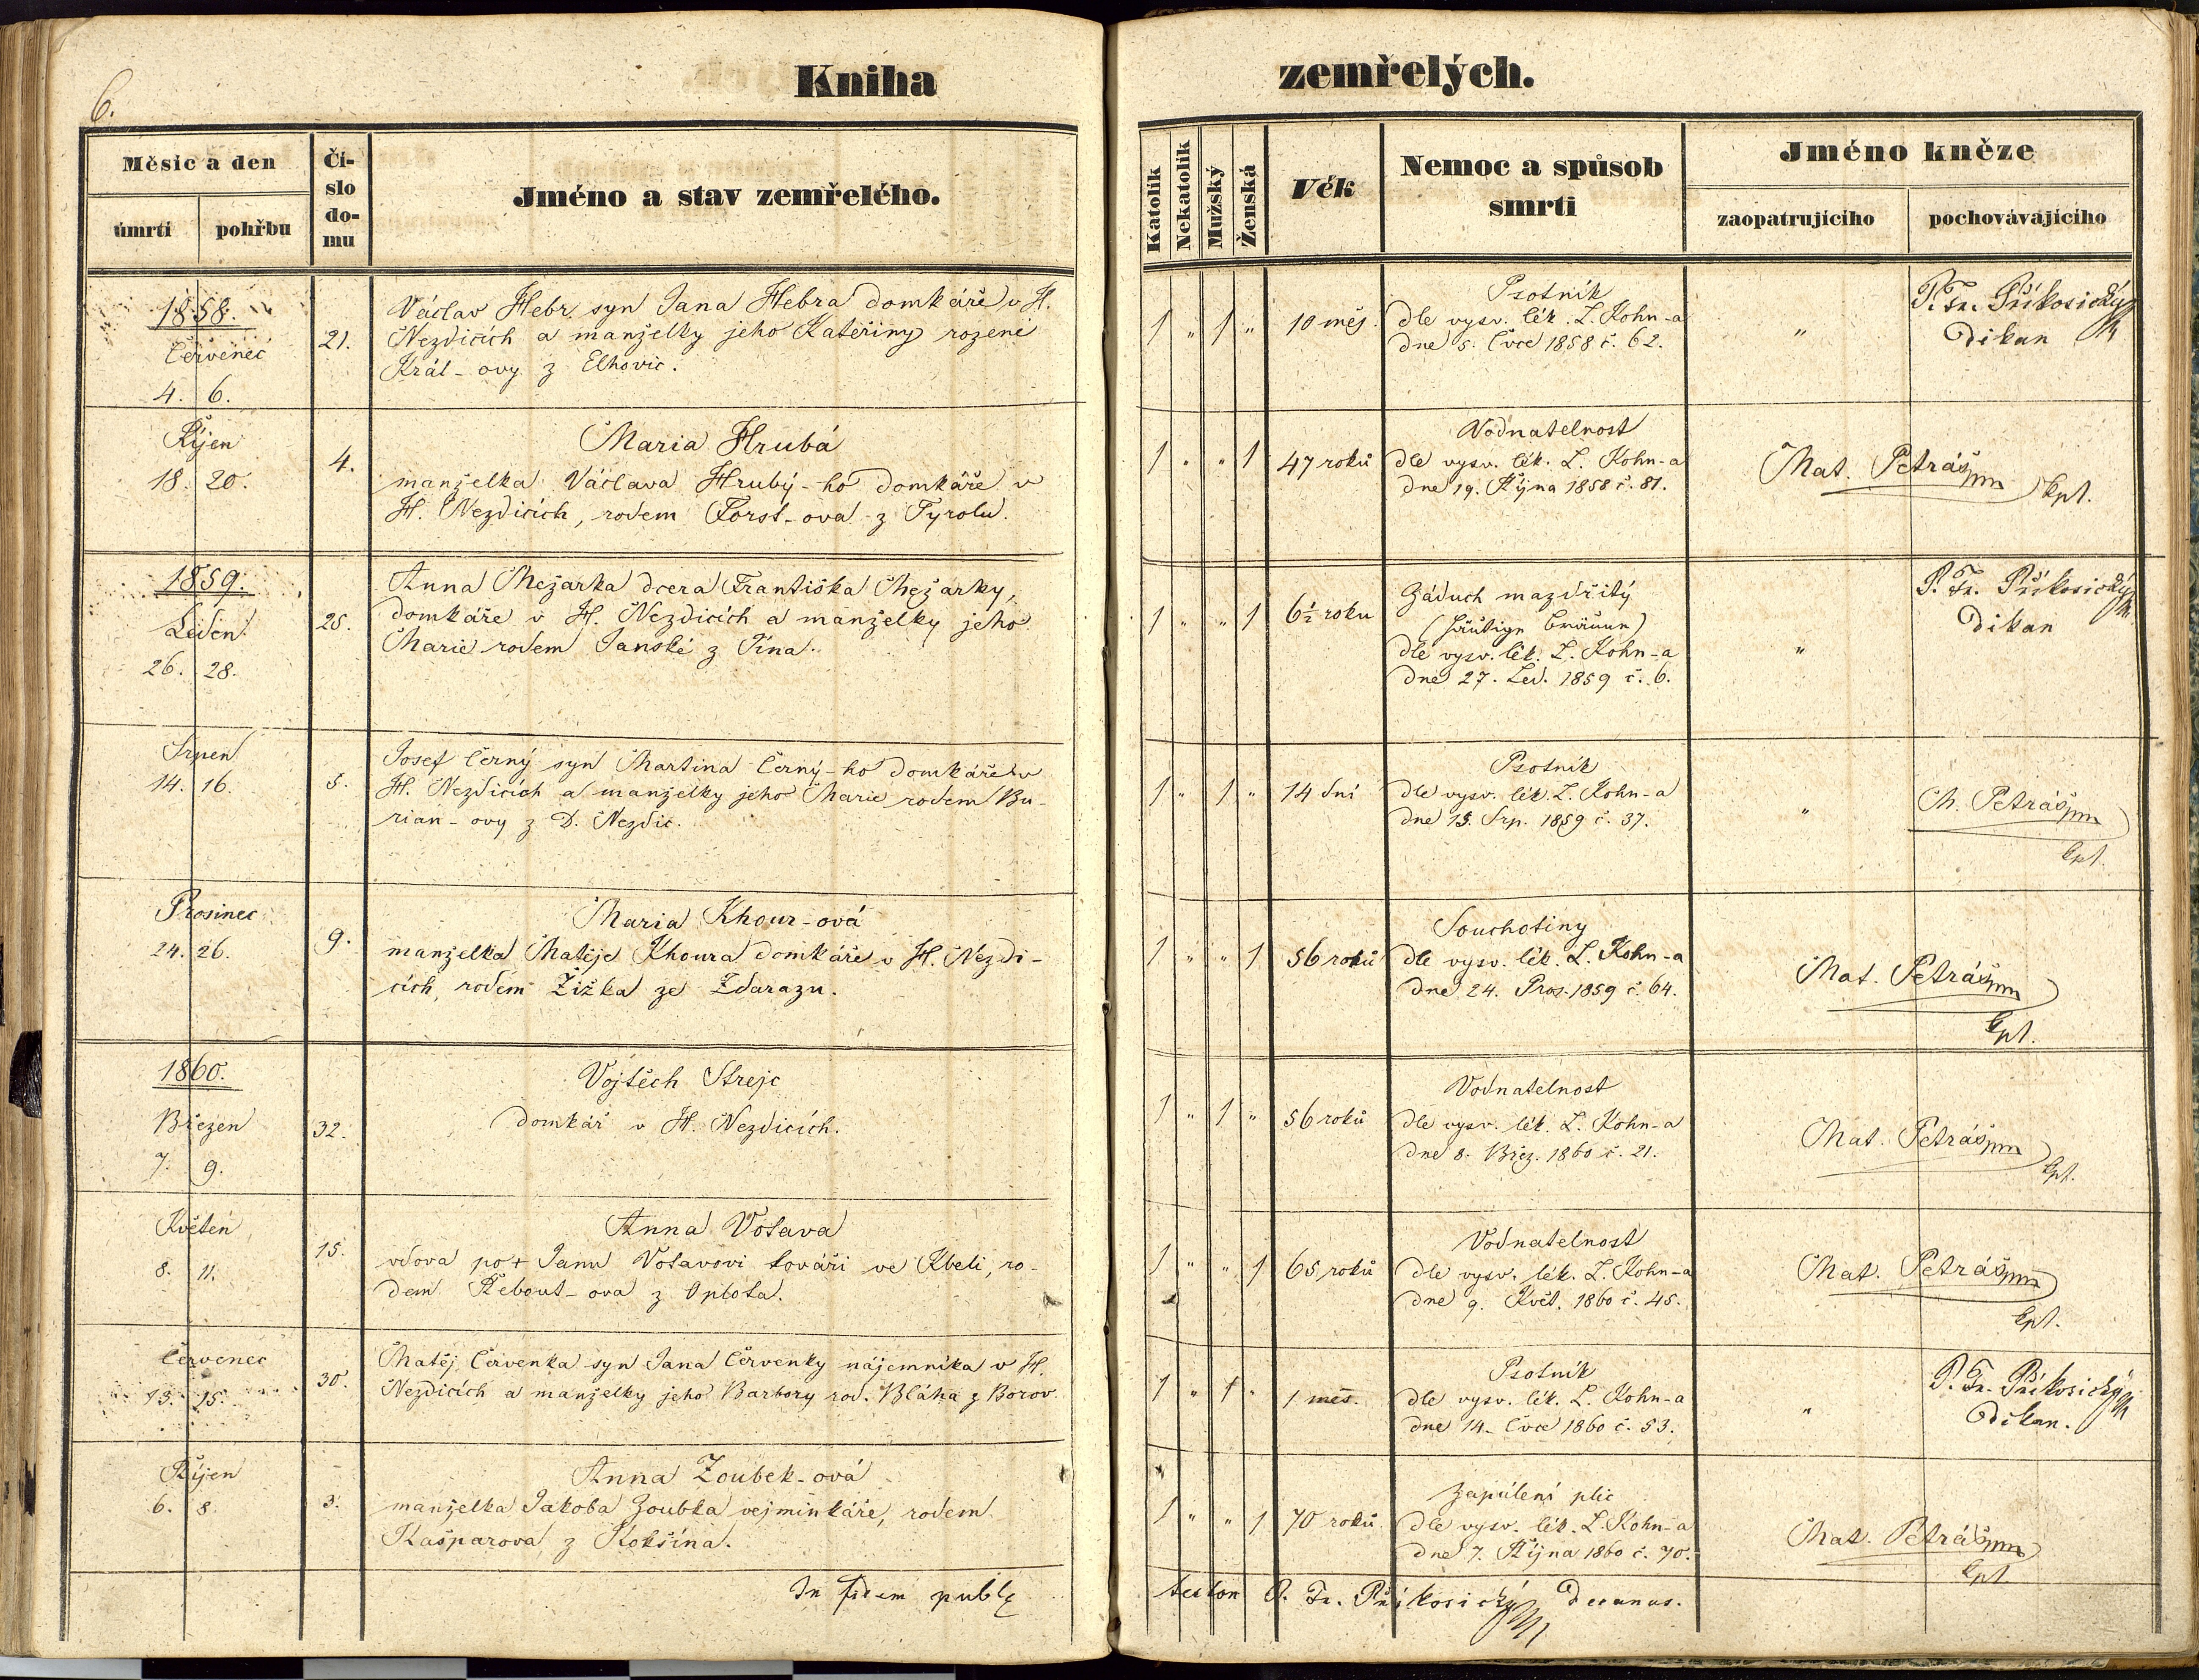 6.
Kniha zemřelých.
Měsíc a den
úmrtí
pohřbu
Čí-
slo
do-
mu
Jméno a stav zemřelého.
Katolík
Nekatolík
Mužský
Ženská
Věk
Nemoc a spůsob
smrti
Jméno kněze
zaopatrujícího
pochovávajícího
1858.
Červenec
4. 6.
21.
Václav Hebr, syn Jana Hebra domkáře v H.
Nezdicích a manželky jeho Kateřiny rozené
Král-ovy z Elhovic.
1 " 1 "
10 měs.
Psotník
dle vysv. lék. L. Kohn-a
dne 5. Čvce 1858 č. 62.
"
P. Fr. Příkosický
Děkan
Říjen
18. 20.
4.
Maria Hrubá
manželka Václava Hrubý-ho domkáře v
H. Nezdicích, rodem Forst-ova z Tyrolu.
1 " " 1
47 roků
Vodnatelnost
dle vysv. lék. L. Kohn-a
dne 19. Října 1858 č. 81.
Mat. Petráš mp
Kpl.
1859.
Leden
26. 28.
25.
Anna Mežarka dcera Františka Mežarky,
domkáře v H. Nezdicích a manželky jeho
Marie rodem Janské z Týna.
1 " " 1
6½ roku
Záduch mazdřitý
(häutige Bräune)
dle vysv. lék. L. Kohn-a
dne 27. Led. 1859 č. 6.
"
P. Fr. Příkosický
Děkan
Srpen
14. 16.
5.
Josef Černý syn Martina Černý-ho domkáře v
H. Nezdicích a manželky jeho Marie rodem Bu-
rian-ovy z D. Nezdic.
1 " 1 "
14 dní
Psotník
dle vysv. lék. L. Kohn-a
dne 15. Srp. 1859 č. 37.
"
M. Petráš mp
Kpl.
Prosinec
24. 26.
9.
Maria Khour-ová
manželka Matěje Khoura domkáře v H. Nezdi-
cích, rodem Žižka ze Zdarazu.
1 " " 1
56 roků
Souchotiny
dle vysv. lék. L. Kohn-a
dne 24. Pros. 1859 č. 64.
Mat. Petráš mp
Kpl.
1860.
Březen
7. 9.
32.
Vojtěch Strejc
domkář v H. Nezdicích.
1 " 1 "
56 roků
Vodnatelnost
dle vysv. lék. L. Kohn-a
dne 8. Břez. 1860 č. 21.
Mat. Petráš mp
Kpl.
Květen
8. 11.
15.
Anna Votava
vdova po + Janu Votavovi kováři ve Kbeli, ro-
dem Řebout-ova z Oplota.
1 " " 1
65 roků
Vodnatelnost
dle vysv. lék. L. Kohn-a
dne 9. Květ. 1860 č. 45.
Mat. Petráš mp
Kpl.
Červenec
13. 15.
30.
Matěj Červenka syn Jana Červenky nájemníka v H.
Nezdicích a manželky jeho Barbory rod. Bláha z Borov.
1 " 1 "
1 měs.
Psotník
dle vysv. lék. L. Kohn-a
dne 14. Čvce 1860 č. 53.
"
P. Fr. Příkosický
Děkan.
Říjen
6. 8.
3.
Anna Zoubek-ová
manželka Jakoba Zoubka vejminkáře, rodem
Kašparova z Kokšína.
1 " " 1
70 roků
Zapálení plic
dle vysv. lék. L. Kohn-a
dne 7. Října 1860 č. 70.
Mat. Petráš mp
Kpl.
In fidem publ. testor P. Fr. Příkosický Decanus.